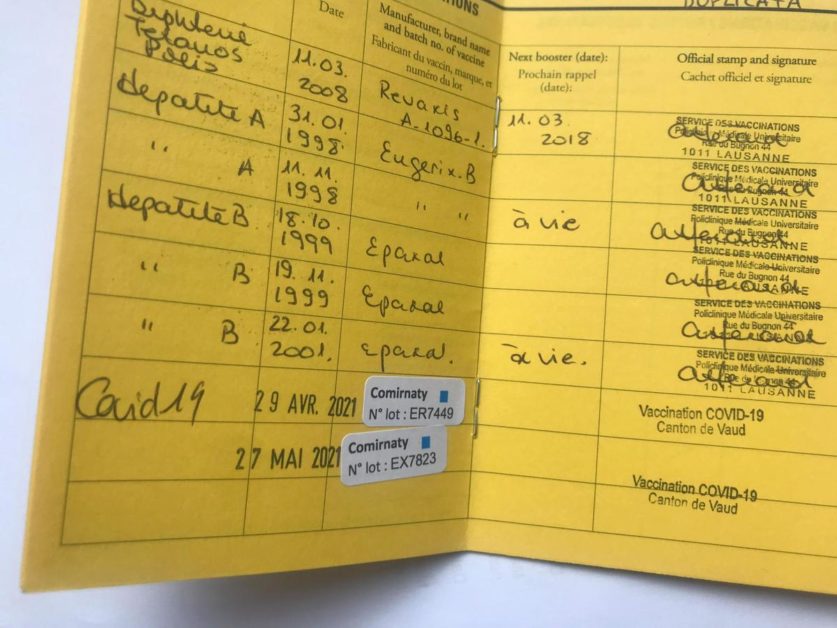 DUPLICATA
Date
Manufacturer, brand name
and batch no. of vaccine
Fabricant du vaccin, marque, et
numéro du lot
Next booster (date):
Prochain rappel
(date):
Official stamp and signature
Cachet officiel et signature
Diphterie
Tetanos
Polio
11.03.
2008
Revaxis
A-1096-1.
11.03.
2018
SERVICE DES VACCINATIONS
Policlinique Médicale Universitaire
Rue du Bugnon 44
1011 LAUSANNE
Hepatite A
31.01.
1998.
Eugerix.B
SERVICE DES VACCINATIONS
Policlinique Médicale Universitaire
Rue du Bugnon 44
1011 LAUSANNE
" A
11.11.
1998
" "
à vie
SERVICE DES VACCINATIONS
Policlinique Médicale Universitaire
Rue du Bugnon 44
1011 LAUSANNE
Hepatite B
18.10.
1999
Epaxal
SERVICE DES VACCINATIONS
Policlinique Médicale Universitaire
Rue du Bugnon 44
LAUSANNE
" B
19.11.
1999
Epaxal
SERVICE DES VACCINATIONS
Policlinique Médicale Universitaire
Rue du Bugnon 44
LAUSANNE
" B
22.01.
2001.
Epaxal.
à vie.
SERVICE DES VACCINATIONS
Policlinique Médicale Universitaire
Rue du Bugnon 44
1011 LAUSANNE
Covid 19
29 AVR. 2021
Comirnaty
N° lot : ER7449
Vaccination COVID-19
Canton de Vaud
27 MAI 2021
Comirnaty
N° lot : EX7823
Vaccination COVID-19
Canton de Vaud